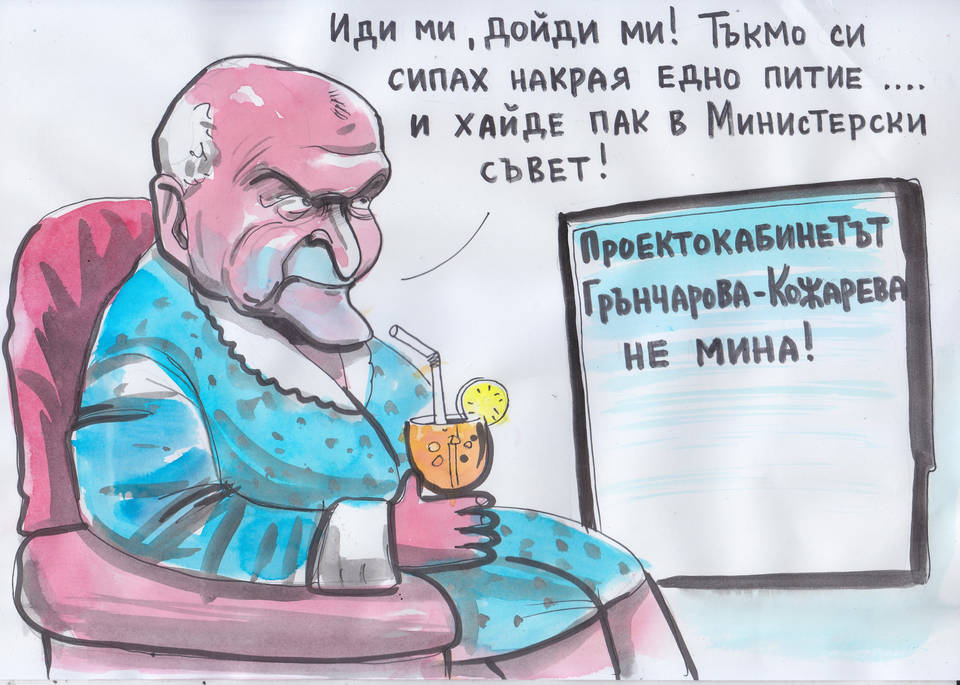 Иди ми, дойди ми! Тъкмо си
сипах накрая едно питие ....
и хайде пак в Министерски
съвет!
Проектокабинетът
Грънчарова-Кожарева
не мина!